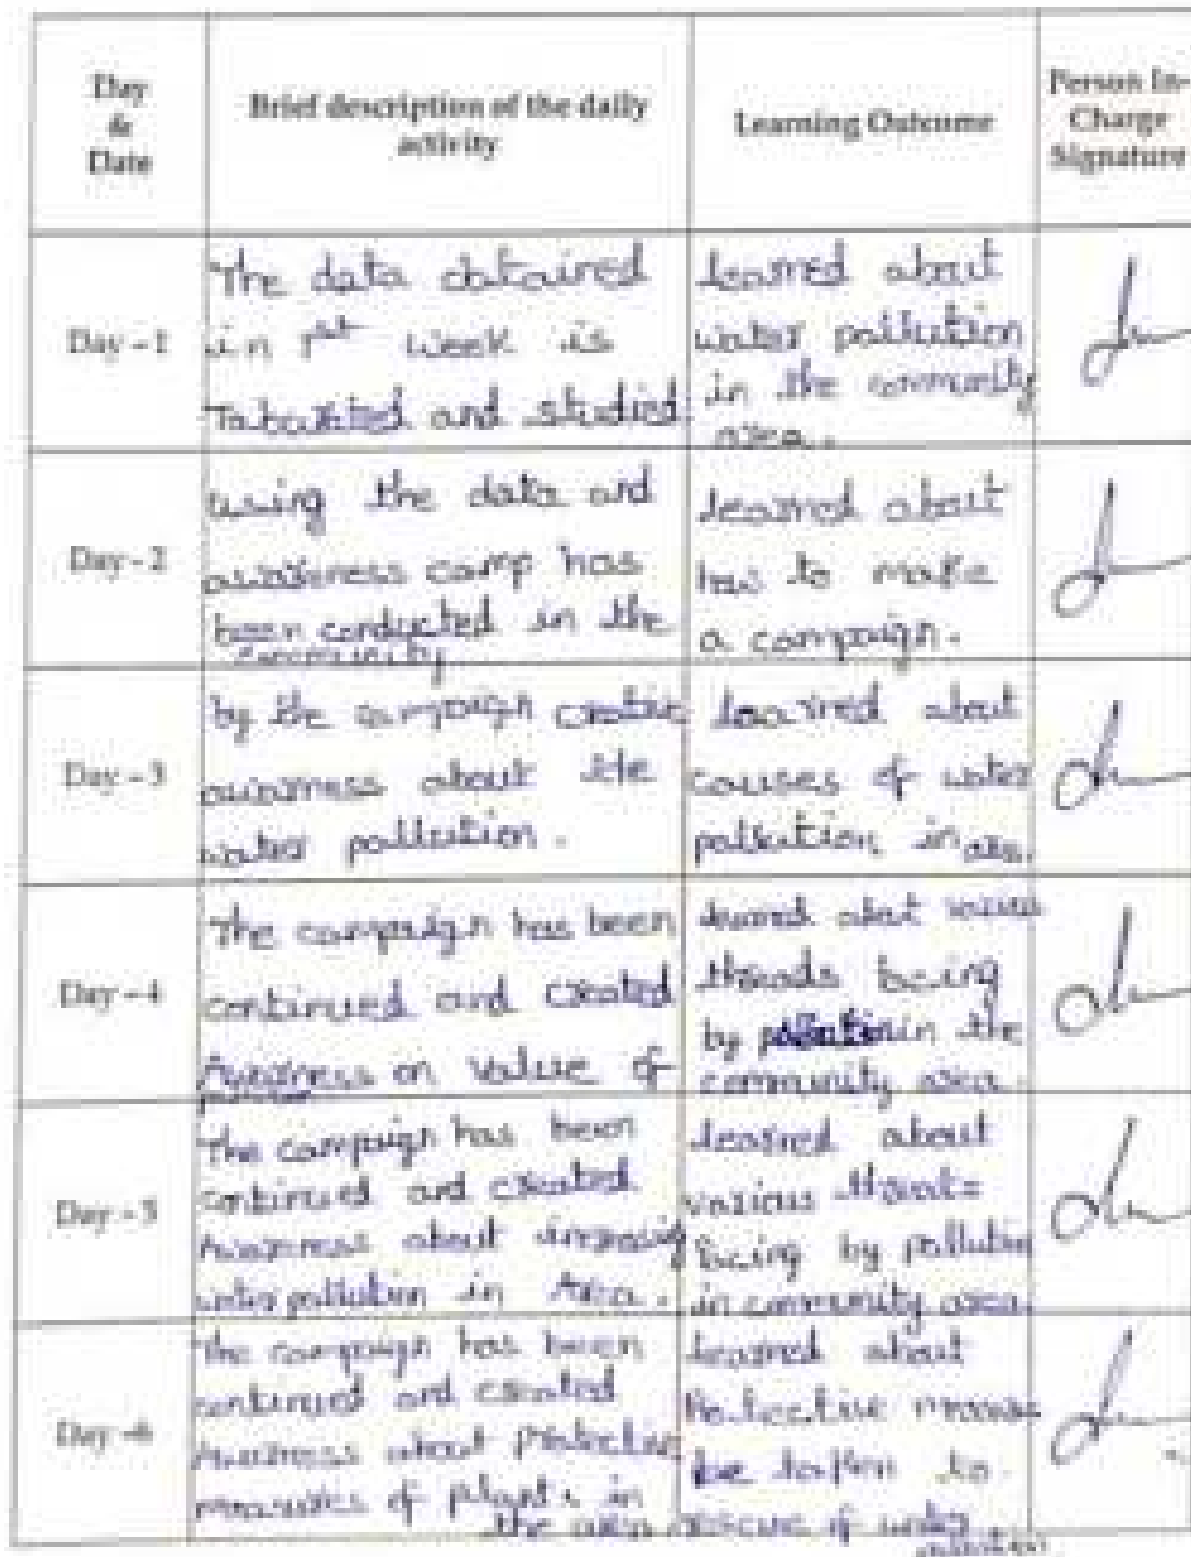 Day
&
Date
Brief description of the daily
activity
Learning Outcome
Person In-
Charge
Signature
Day - 1
The data obtained
in 1st week is
Tabulated and studied
learned about
water pollution
in the community
area.
Day - 2
using the data and
awareness camp has
been conducted in the
community
learned about
how to make
a campaign.
Day - 3
by the campaign create
awarness about the
water pollution.
learned about
causes of water
pollution in area.
Day - 4
The campaign has been
continued and created
Awarness on value of
learned about various
threads being
by pollution in the
community area.
Day - 5
The campaign has been
continued and created
Awarness about increasing
water pollution in Area.
learned about
various threats
facing by pollution
in community area.
Day - 6
The campaign has been
continued and created
Awarness about Protective
measures of plants in
the area
learned about
Protective measures
be taken to
rescue of water
pollution